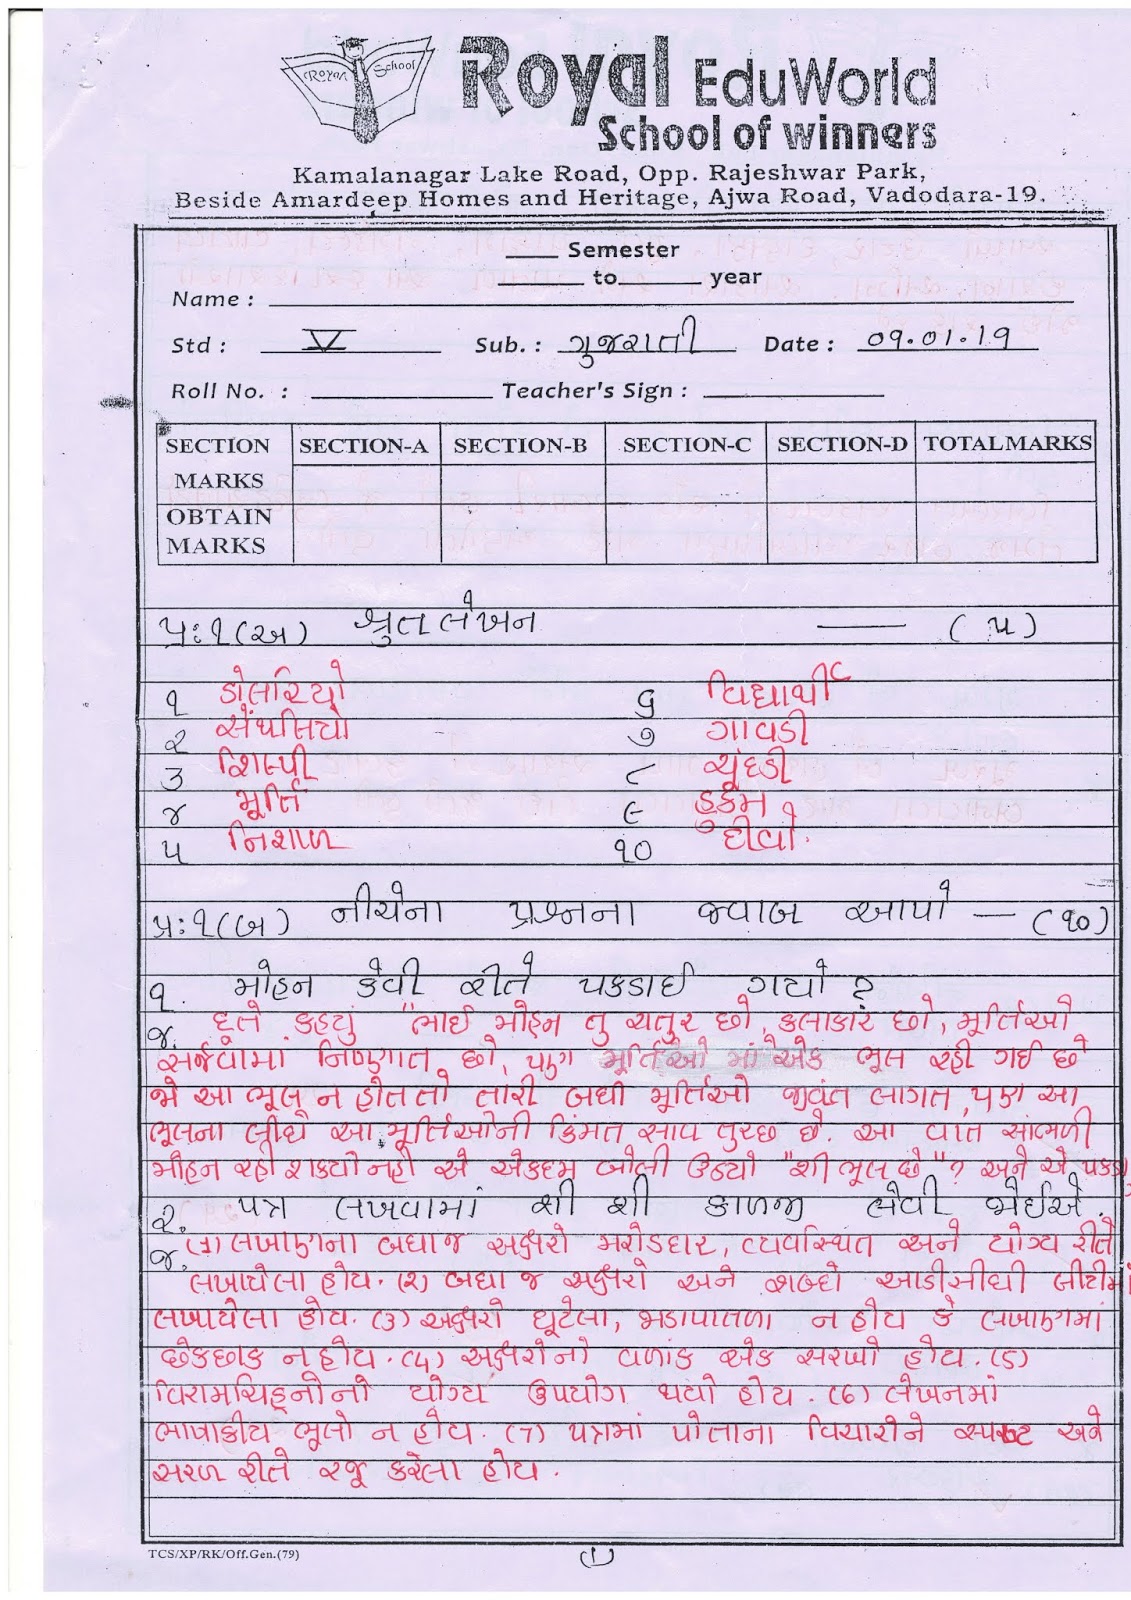 CROYAN School
Royal EduWorld
School of winners
Kamalanagar Lake Road, Opp. Rajeshwar Park,
Beside Amardeep Homes and Heritage, Ajwa Road, Vadodara-19.
____ Semester
______ to ______ year
Name :
Std : V Sub. : ગુજરાતી Date : 09.01.19
Roll No. : Teacher's Sign :
SECTION SECTION-A SECTION-B SECTION-C SECTION-D TOTALMARKS
MARKS
OBTAIN
MARKS
પ્ર:૧(અ) શ્રુતલેખન — (૫)
૧ ડોલરિયો ૬ વિદ્યાર્થી
૨ સેંથલિયો ૭ ગાવડી
૩ શિલ્પી ૮ ચૂંદડી
૪ મૂર્તિ ૯ હુકમ
૫ નિશાળ ૧૦ દીવો.
પ્ર:૧(બ) નીચેના પ્રશ્નના જવાબ આપો — (૧૦)
૧. મોહન કેવી રીતે પકડાઈ ગયો ?
જ. દૂતે કહ્યું "ભાઈ મોહન તુ ચતુર છો, કલાકાર છો, મૂર્તિઓ
સર્જવામાં નિષ્ણાત છો, પણ મૂર્તિઓ માં એક ભૂલ રહી ગઈ છે
જો આ ભૂલ ન હોત તો તારી બધી મૂર્તિઓ જીવંત લાગત, પણ આ
ભૂલના લીધે આ મૂર્તિઓની કિંમત સાવ તુચ્છ છે. આ વાત સાંભળી
મોહન રહી શક્યો નહી એ એકદમ બોલી ઉઠ્યો "શી ભૂલ છે"? અને એ
૨. પત્ર લખવામાં શી શી કાળજી લેવી જોઈએ.
જ. (1) લખાણના બધાજ અક્ષરો મરોડદાર, વ્યવસ્થિત અને યોગ્ય રીતે
લખાયેલા હોય. (૨) બધા જ અક્ષરો અને શબ્દો આડીસીધી લીટીમાં
લખાયેલા હોય. (૩) અક્ષરો ઘૂટેલા, જાડાપાતળા ન હોય કે લખાણમાં
છેકછાક ન હોય. (૪) અક્ષરોનો વળાંક એક સરખો હોય. (5)
વિરામચિહ્નોનો યોગ્ય ઉપયોગ થયો હોય. (6) લેખનમાં
ભાષાકીય ભૂલો ન હોય. (7) પત્રમાં પોતાના વિચારોને સ્પષ્ટ અને
સરળ રીતે રજૂ કરેલા હોય.
TCS/XP/RK/Off.Gen.(79)
(1)